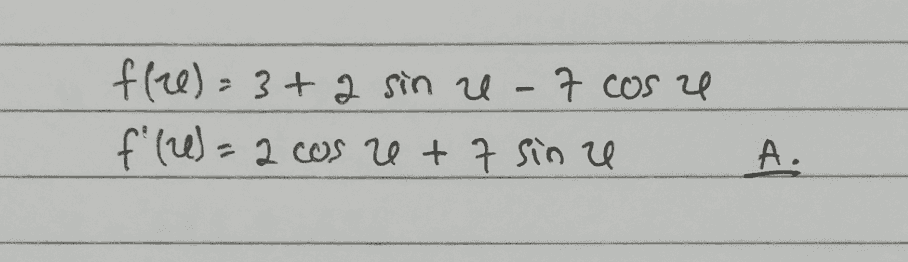 f(x) = 3 + 2 sin x - 7 cos x
f'(x) = 2 cos x + 7 sin x A.